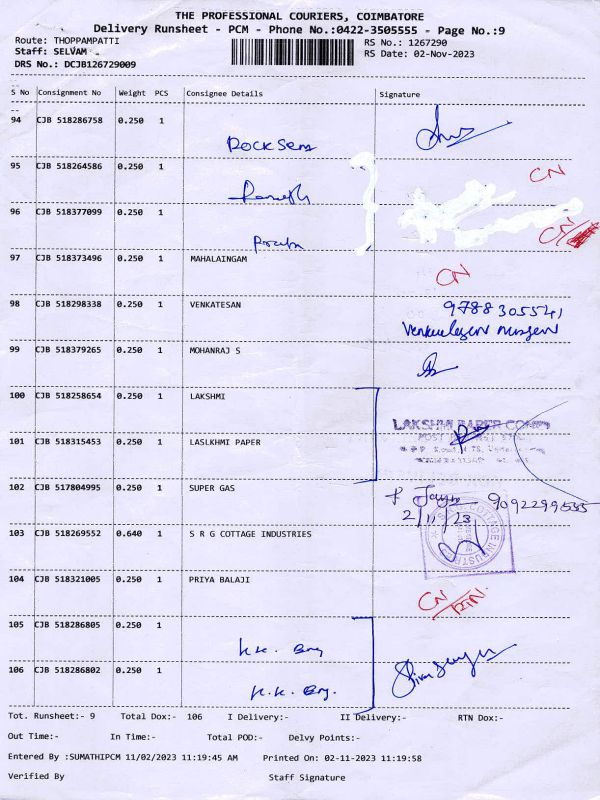 THE PROFESSIONAL COURIERS, COIMBATORE
Delivery Runsheet - PCM - Phone No.:0422-3505555 - Page No.:9
Route: THOPPAMPATTI RS No.: 1267290
Staff: SELVAM RS Date: 02-Nov-2023
DRS No.: DCJB126729009
S No Consignment No Weight PCS Consignee Details Signature
94 CJB 518286758 0.250 1
ROCKSem
95 CJB 518264586 0.250 1
CN
Ramesh
96 CJB 518377099 0.250 1
CN
97 CJB 518373496 0.250 1 MAHALAINGAM
CN
98 CJB 518298338 0.250 1 VENKATESAN 9788305541
99 CJB 518379265 0.250 1 MOHANRAJ S
100 CJB 518258654 0.250 1 LAKSHMI
LAKSHMI PAPER
101 CJB 518315453 0.250 1 LASLKHMI PAPER
102 CJB 517804995 0.250 1 SUPER GAS
2/11/23
103 CJB 518269552 0.640 1 S R G COTTAGE INDUSTRIES
104 CJB 518321005 0.250 1 PRIYA BALAJI
CN/RTN
105 CJB 518286805 0.250 1
K.K. Eng
106 CJB 518286802 0.250 1
K.K. Eng.
Tot. Runsheet:- 9 Total Dox:- 106 I Delivery:- II Delivery:- RTN Dox:-
Out Time:- In Time:- Total POD:- Delvy Points:-
Entered By :SUMATHIPCM 11/02/2023 11:19:45 AM Printed On: 02-11-2023 11:19:58
Verified By Staff Signature